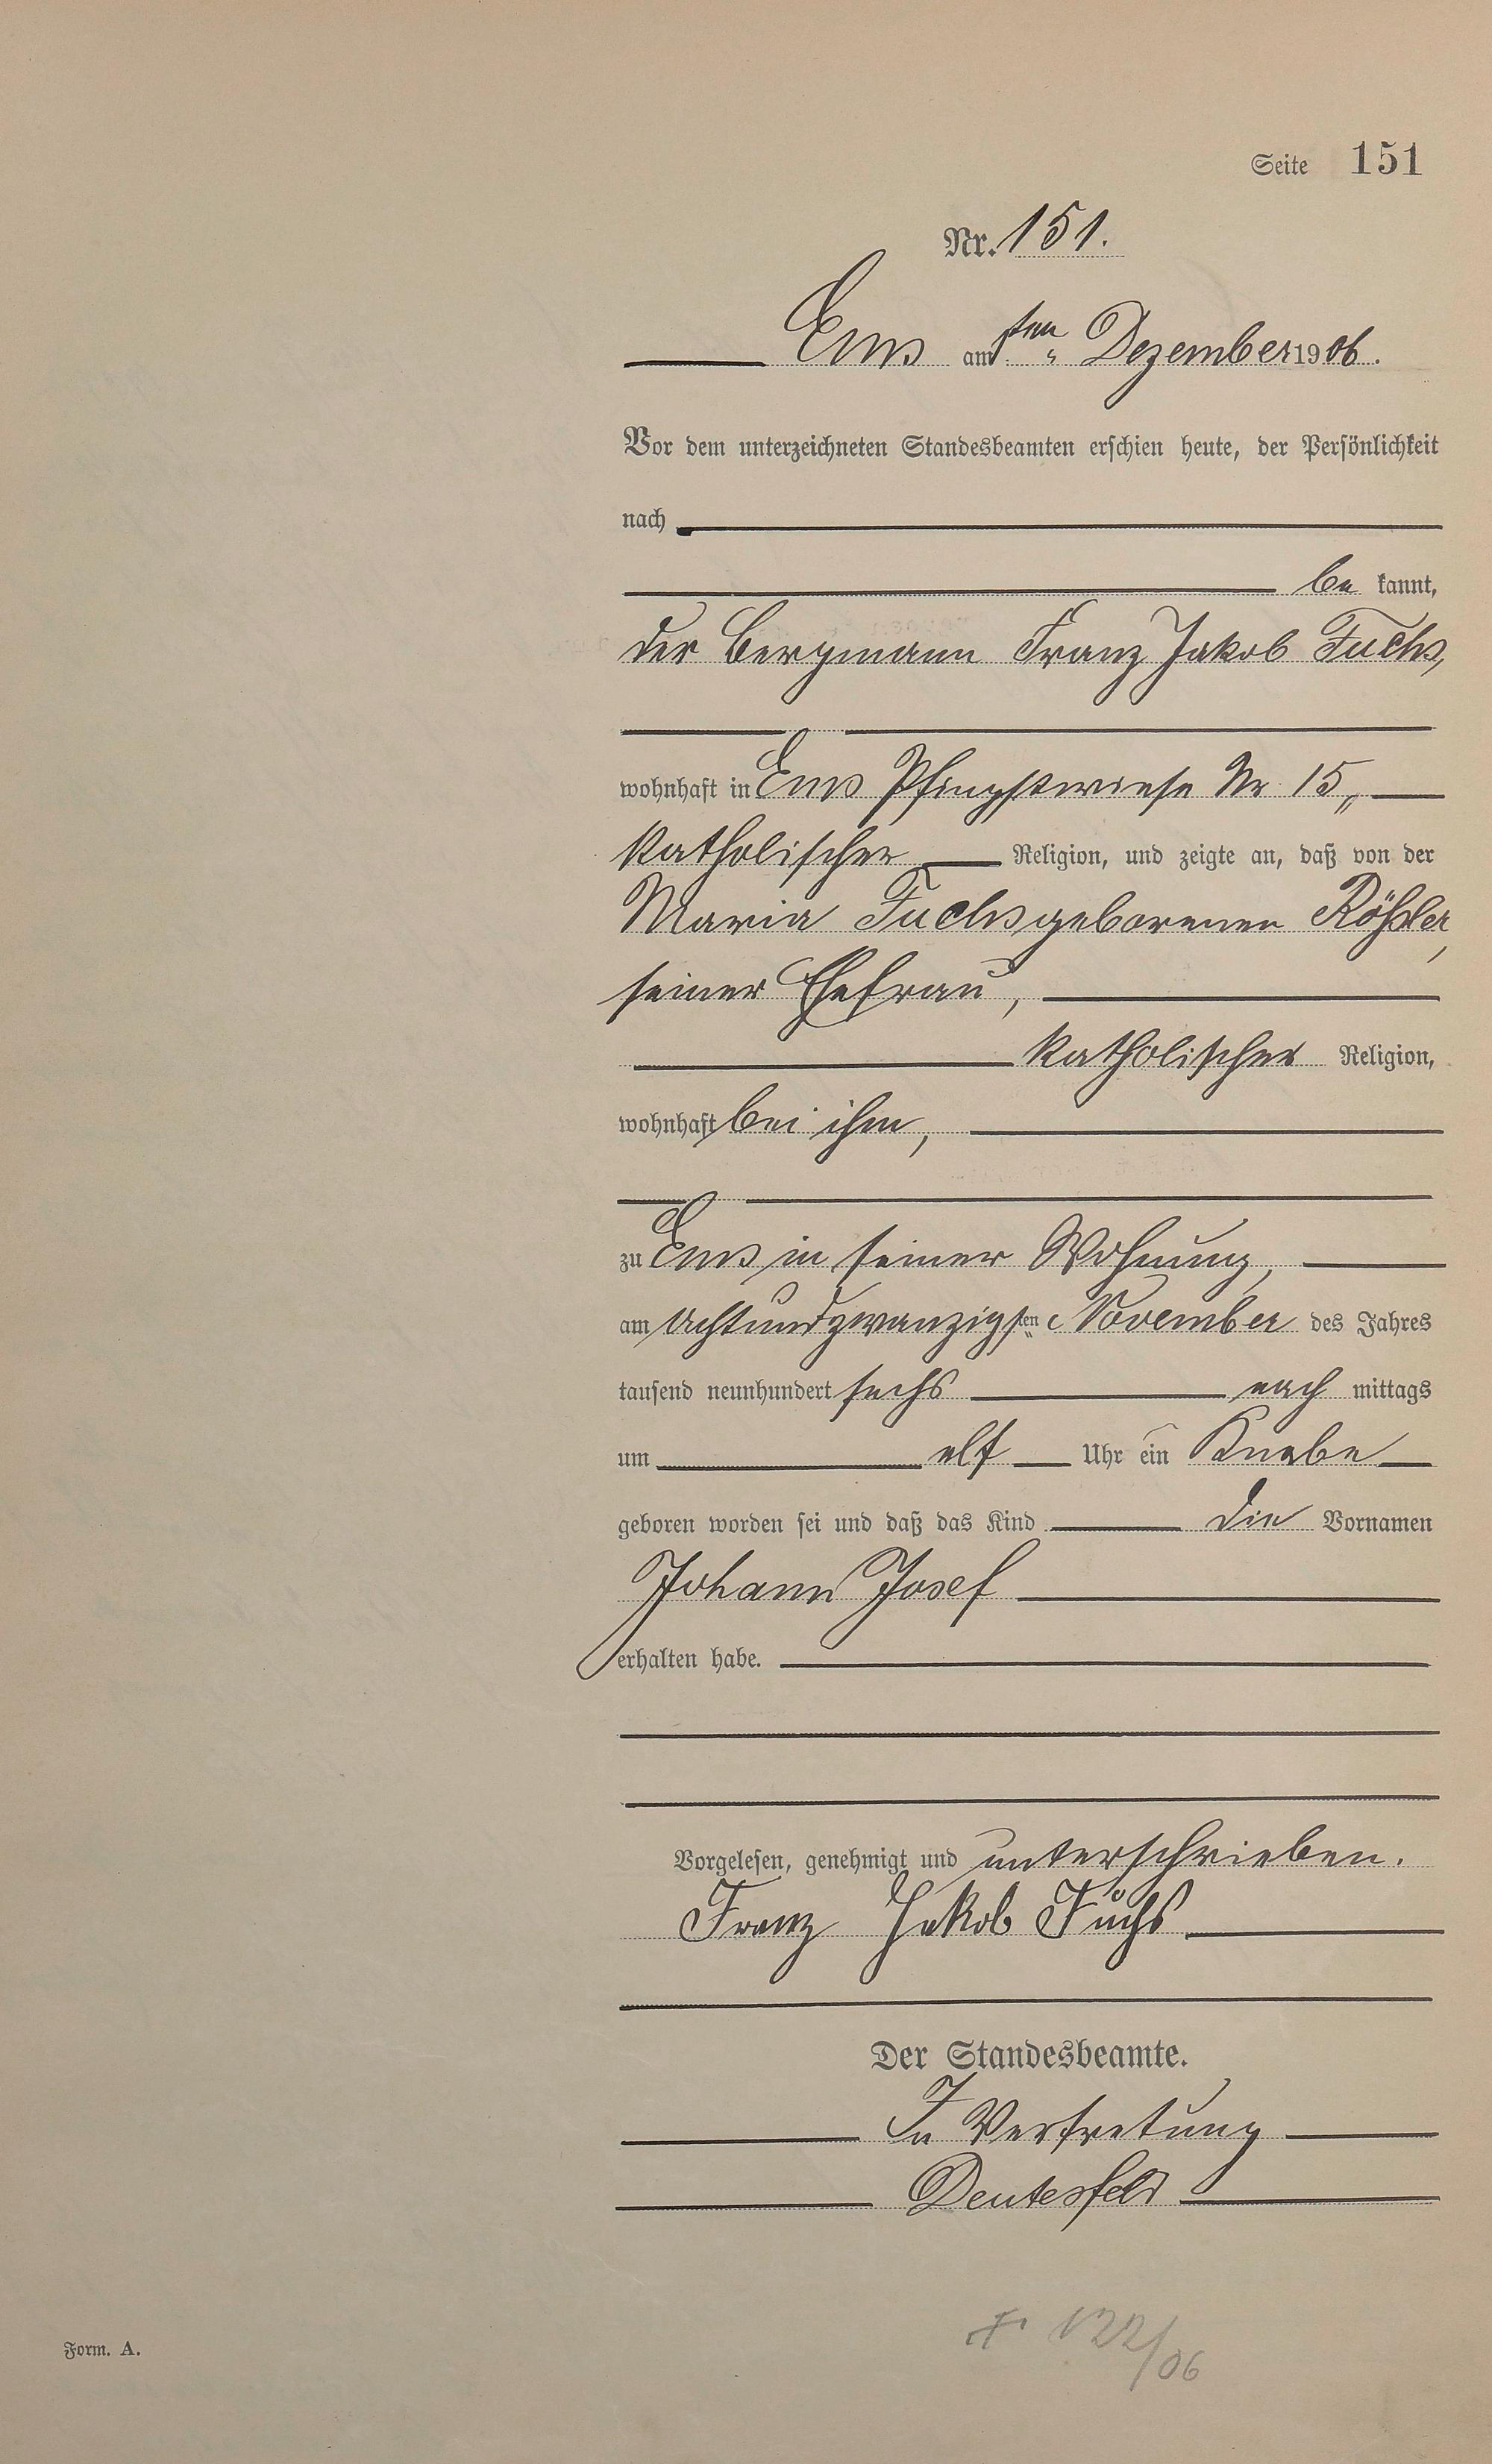 Seite 151
Nr. 151.
Ems am 1ten Dezember 1906.
Vor dem unterzeichneten Standesbeamten erschien heute, der Persönlichkeit
nach
be kannt,
der Bergmann Franz Jakob Fuchs,
wohnhaft in Ems Pfingstwiese Nr 15,
katholischer Religion, und zeigte an, daß von der
Maria Fuchs geborenen
seiner Ehefrau,
katholischer Religion,
wohnhaft bei ihm,
zu Ems in seiner Wohnung,
am achtundzwanzigsten November des Jahres
tausend neunhundert sechs nach mittags
um elf Uhr ein Knabe
geboren worden sei und daß das Kind die Vornamen
Johann Josef
erhalten habe.
Vorgelesen, genehmigt und unterschrieben.
Franz Jakob Fuchs
Der Standesbeamte.
In Vertretung
Deutesfeld
Form. A.
† 122/06